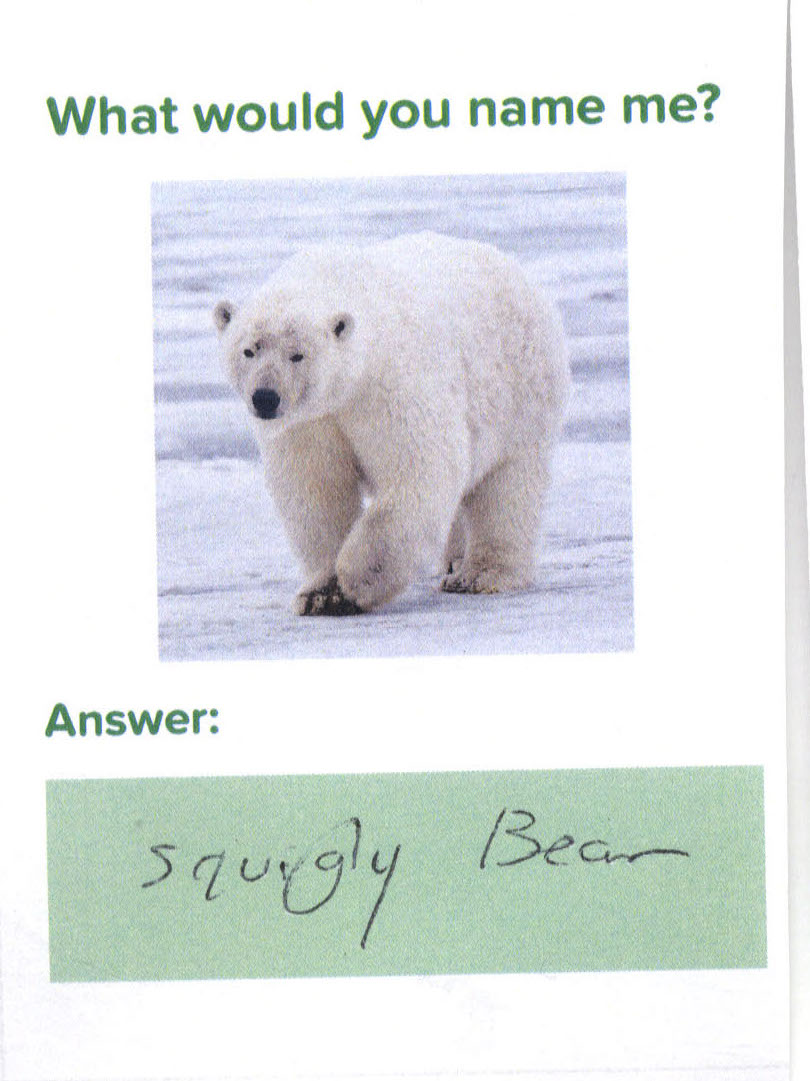 What would you name me?
Answer:
squigly Bear